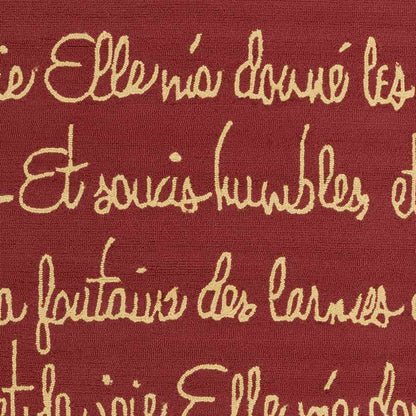 ie Elle m'a donné les
Et soucis humbles, et
a fontaine des larmes
et de joie Elle m'a do